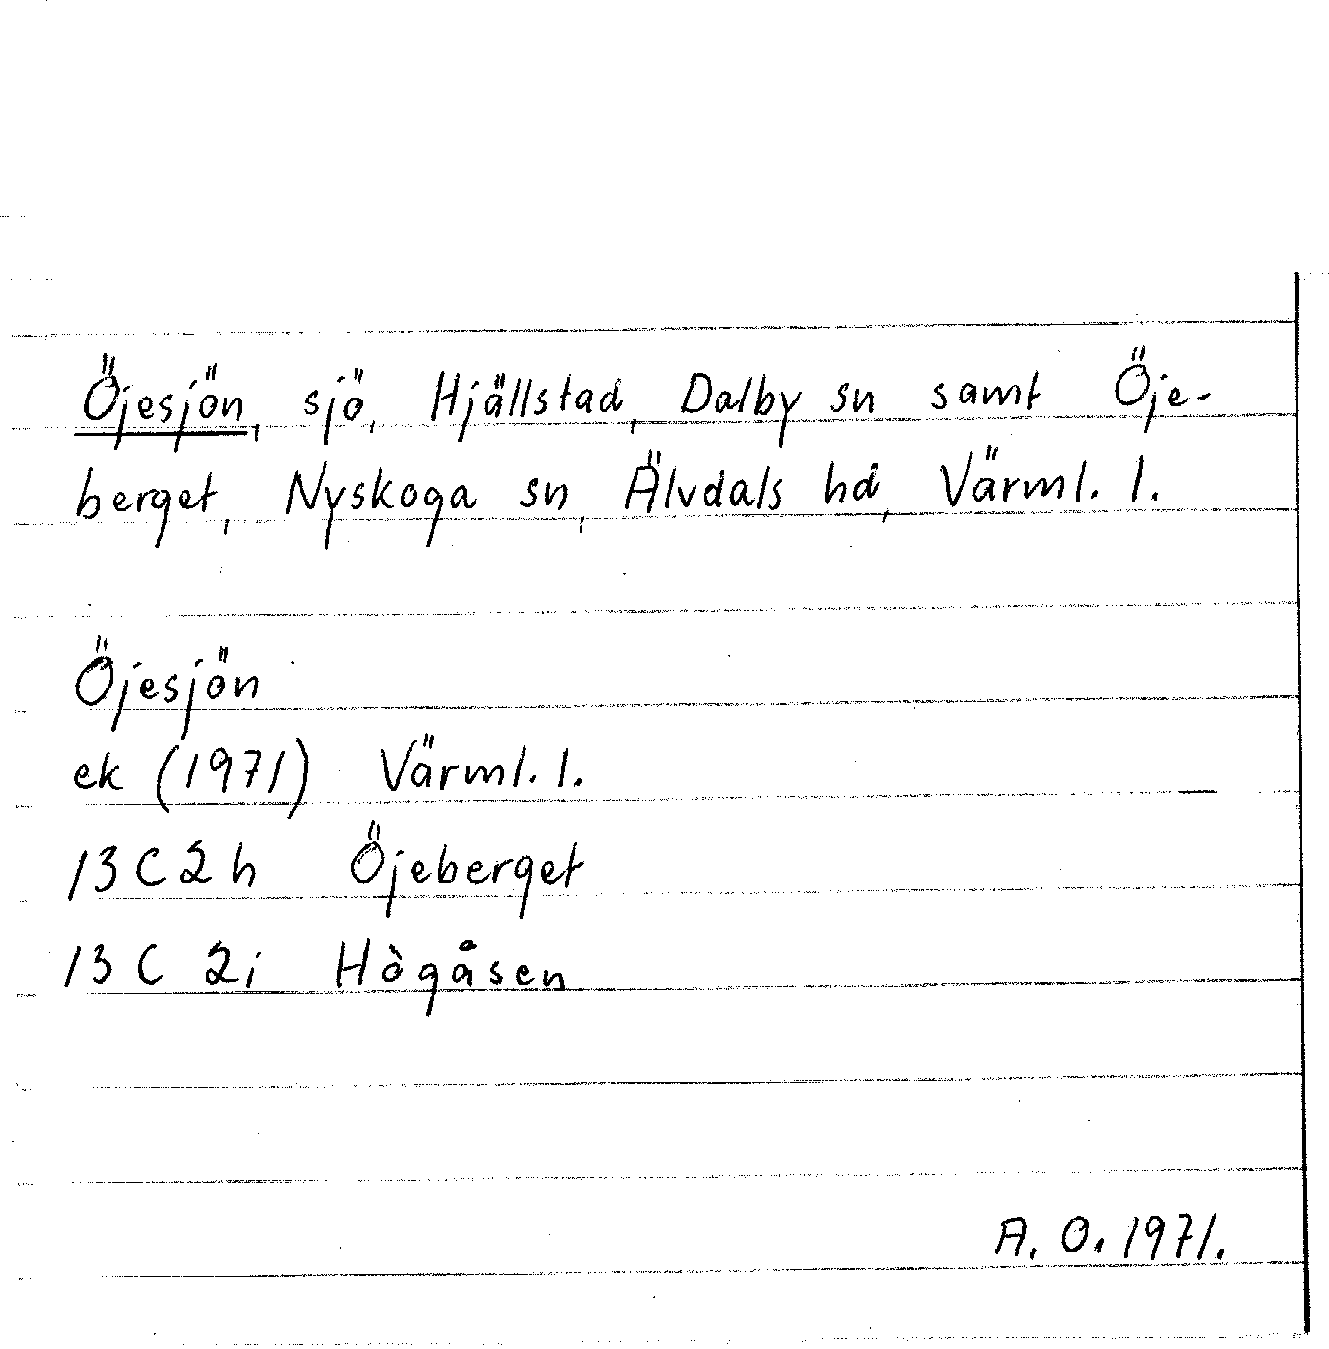 Öjesjön, sjö, Hjällstad, Dalby sn samt Öje-
berget, Nyskoga sn, Älvdals hd, Värml. l.
Öjesjön
ek (1971) Värml. l.
13 C 2 h Öjeberget
13 C 2i Högåsen
A. O. 1971.